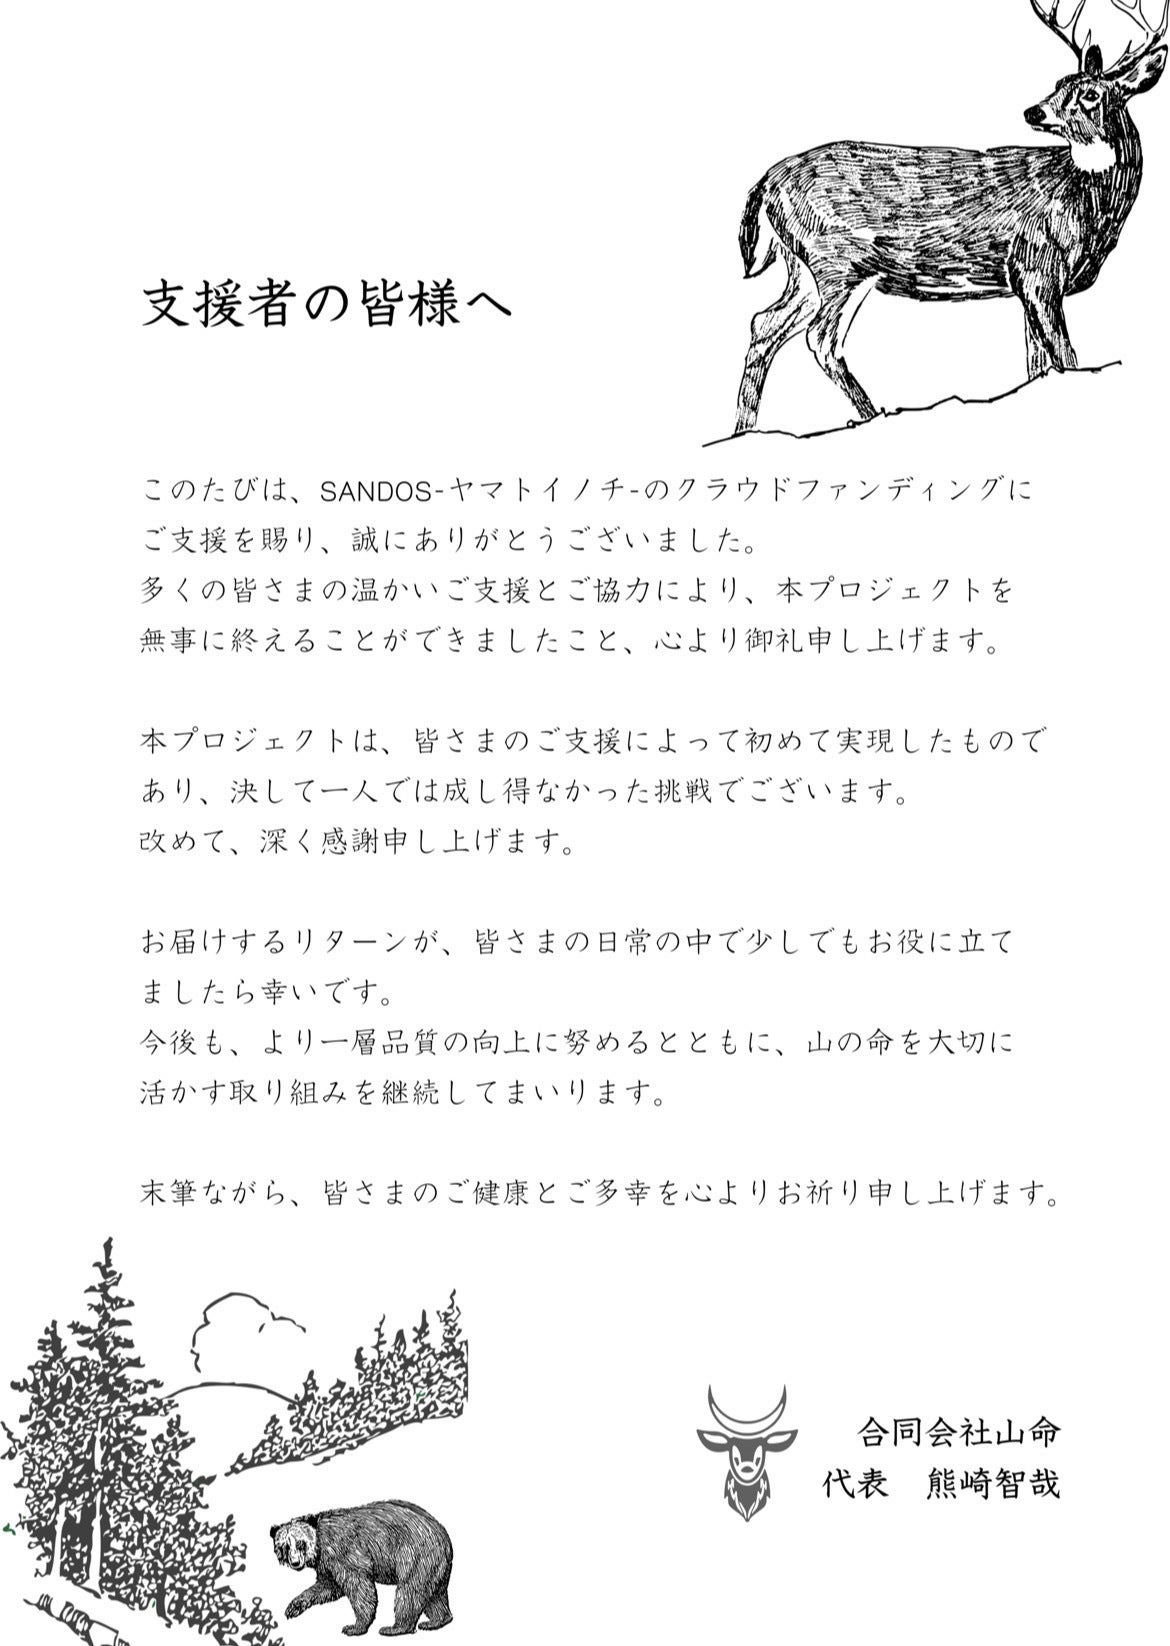 支援者の皆様へ
このたびは、SANDOS-ヤマトイノチ-のクラウドファンディングに
ご支援を賜り、誠にありがとうございました。
多くの皆さまの温かいご支援とご協力により、本プロジェクトを
無事に終えることができましたこと、心より御礼申し上げます。
本プロジェクトは、皆さまのご支援によって初めて実現したもので
あり、決して一人では成し得なかった挑戦でございます。
改めて、深く感謝申し上げます。
お届けするリターンが、皆さまの日常の中で少しでもお役に立て
ましたら幸いです。
今後も、より一層品質の向上に努めるとともに、山の命を大切に
活かす取り組みを継続してまいります。
末筆ながら、皆さまのご健康とご多幸を心よりお祈り申し上げます。
合同会社山命
代表　熊崎智哉